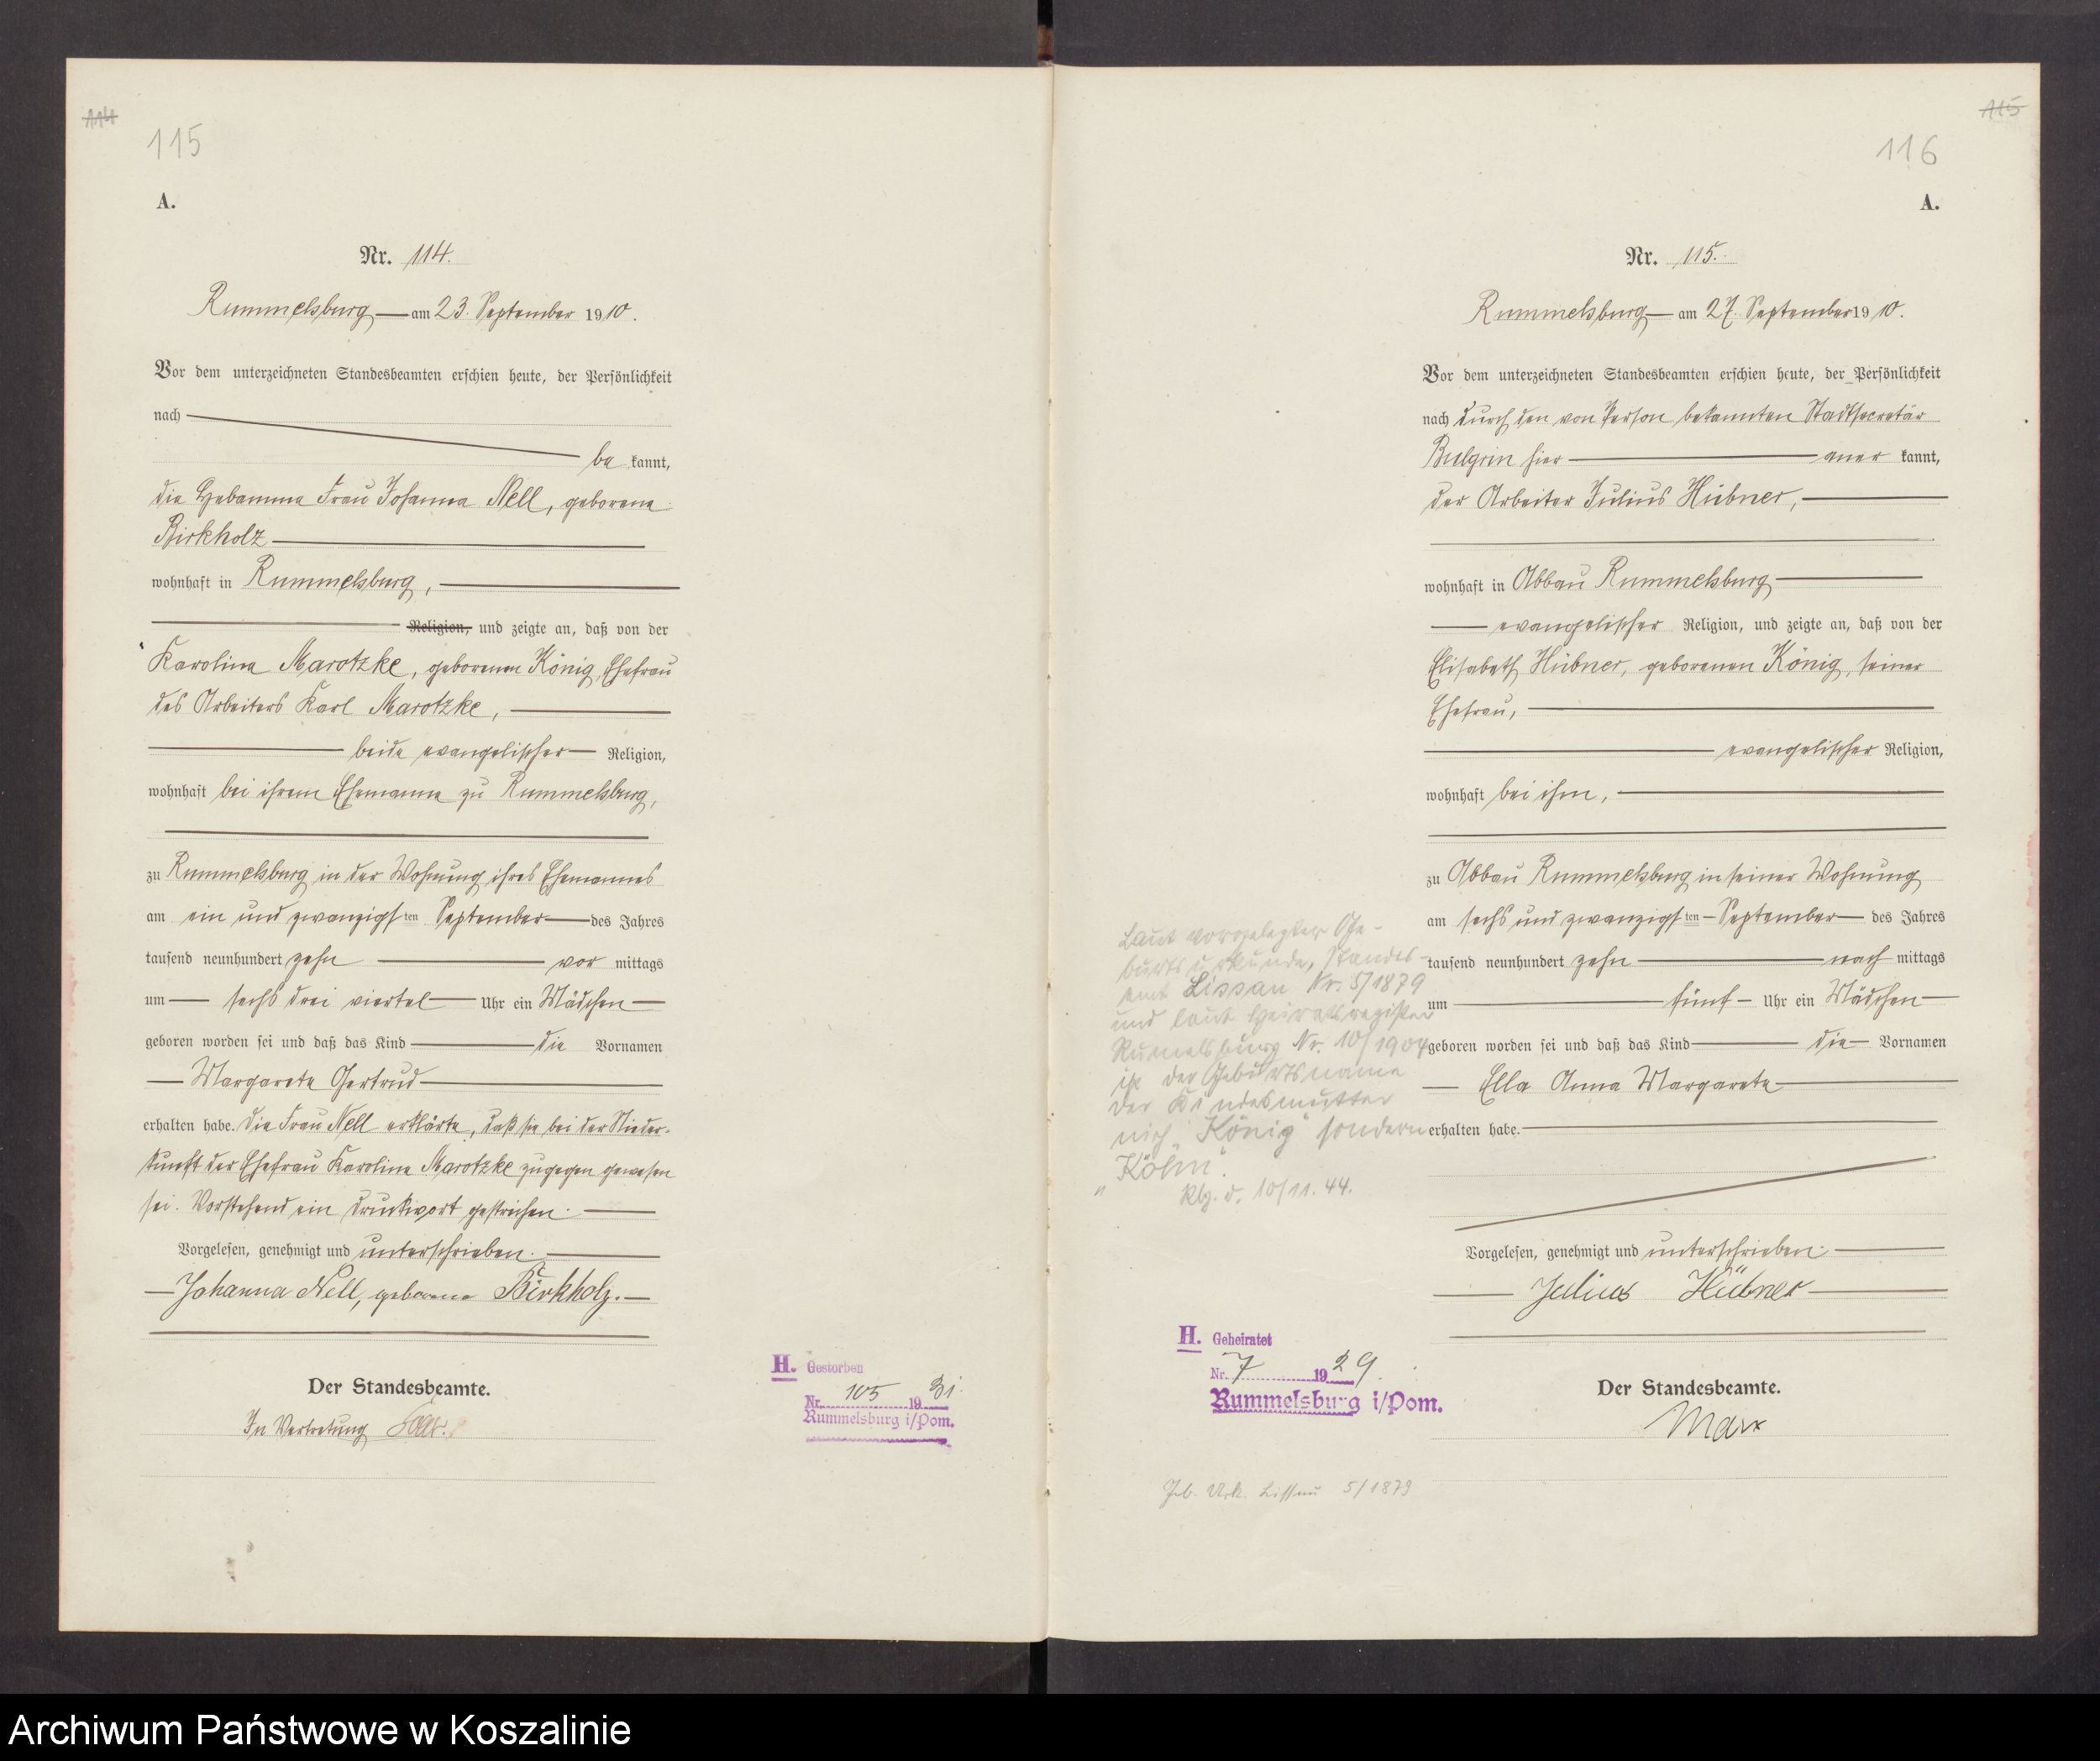 114
115
A.
Nr. 114.
Rummelsburg am 23. September 1910.
Vor dem unterzeichneten Standesbeamten erschien heute, der Persönlichkeit
nach
be kannt,
die Hebamme Frau Johanna Nell, geborene
Birkholz
wohnhaft in Rummelsburg,
Religion, und zeigte an, daß von der
Karoline Marotzke, geborenen König, Ehefrau
des Arbeiters Karl Marotzke,
beide evangelischer Religion,
wohnhaft bei ihrem Ehemanne zu Rummelsburg,
zu Rummelsburg in der Wohnung ihres Ehemannes
am ein und zwanzigsten September des Jahres
tausend neunhundert zehn vor mittags
um sechs drei viertel Uhr ein Mädchen
geboren worden sei und daß das Kind die Vornamen
Margarete Gertrud
erhalten habe. Die Frau Nell erklärte, daß sie bei der Nieder-
kunft der Ehefrau Karoline Marotzke zugegen gewesen
sei. Vorstehend ein Druckwort gestrichen.
Vorgelesen, genehmigt und unterschrieben.
Johanna Nell, geborene Birkholz.
Der Standesbeamte.
In Vertretung
H. Gestorben
Nr. 105 1931
Rummelsburg i/Pom.
115
116
A.
Nr. 115.
Rummelsburg am 27. September 1910.
Vor dem unterzeichneten Standesbeamten erschien heute, der Persönlichkeit
nach durch den von Person bekannten Stadtsecretär
Bulgrin hier aner kannt,
der Arbeiter Julius Hübner,
wohnhaft in Abbau Rummelsburg
evangelischer Religion, und zeigte an, daß von der
Elisabeth Hübner, geborenen König, seiner
Ehefrau,
evangelischer Religion,
wohnhaft bei ihm,
zu Abbau Rummelsburg in seiner Wohnung
am sechs und zwanzigsten September des Jahres
tausend neunhundert zehn nach mittags
um fünf Uhr ein Mädchen
geboren worden sei und daß das Kind die Vornamen
Ella Anna Margarete
erhalten habe.
Vorgelesen, genehmigt und unterschrieben.
Julius Hübner
Der Standesbeamte.
Marx
Laut vorgelegter Ge-
burtsurkunde, Standes-
amt Lissau Nr. 5/1879
und laut Heiratsregister
Rumelsburg Nr. 10/1904
ist der Geburtsname
der Kindesmutter
nich "König" sondern
"Köhn".
Rbg. d. 10/11. 44.
H. Geheiratet
Nr. 7 1929.
Rummelsburg i/Pom.
Geb. Urk. Lissau 5/1879
Archiwum Państwowe w Koszalinie